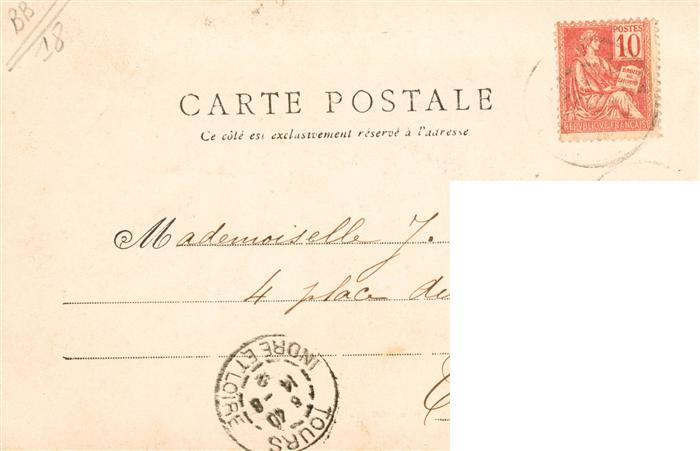 BB
18
POSTES
10
DROITS DE L'HOMME
RÉPUBLIQUE FRANÇAISE
CARTE POSTALE
Ce côté est exclusivement réservé à l'adresse
Mademoiselle J.
4 place du
TOURS
INDRE ET LOIRE